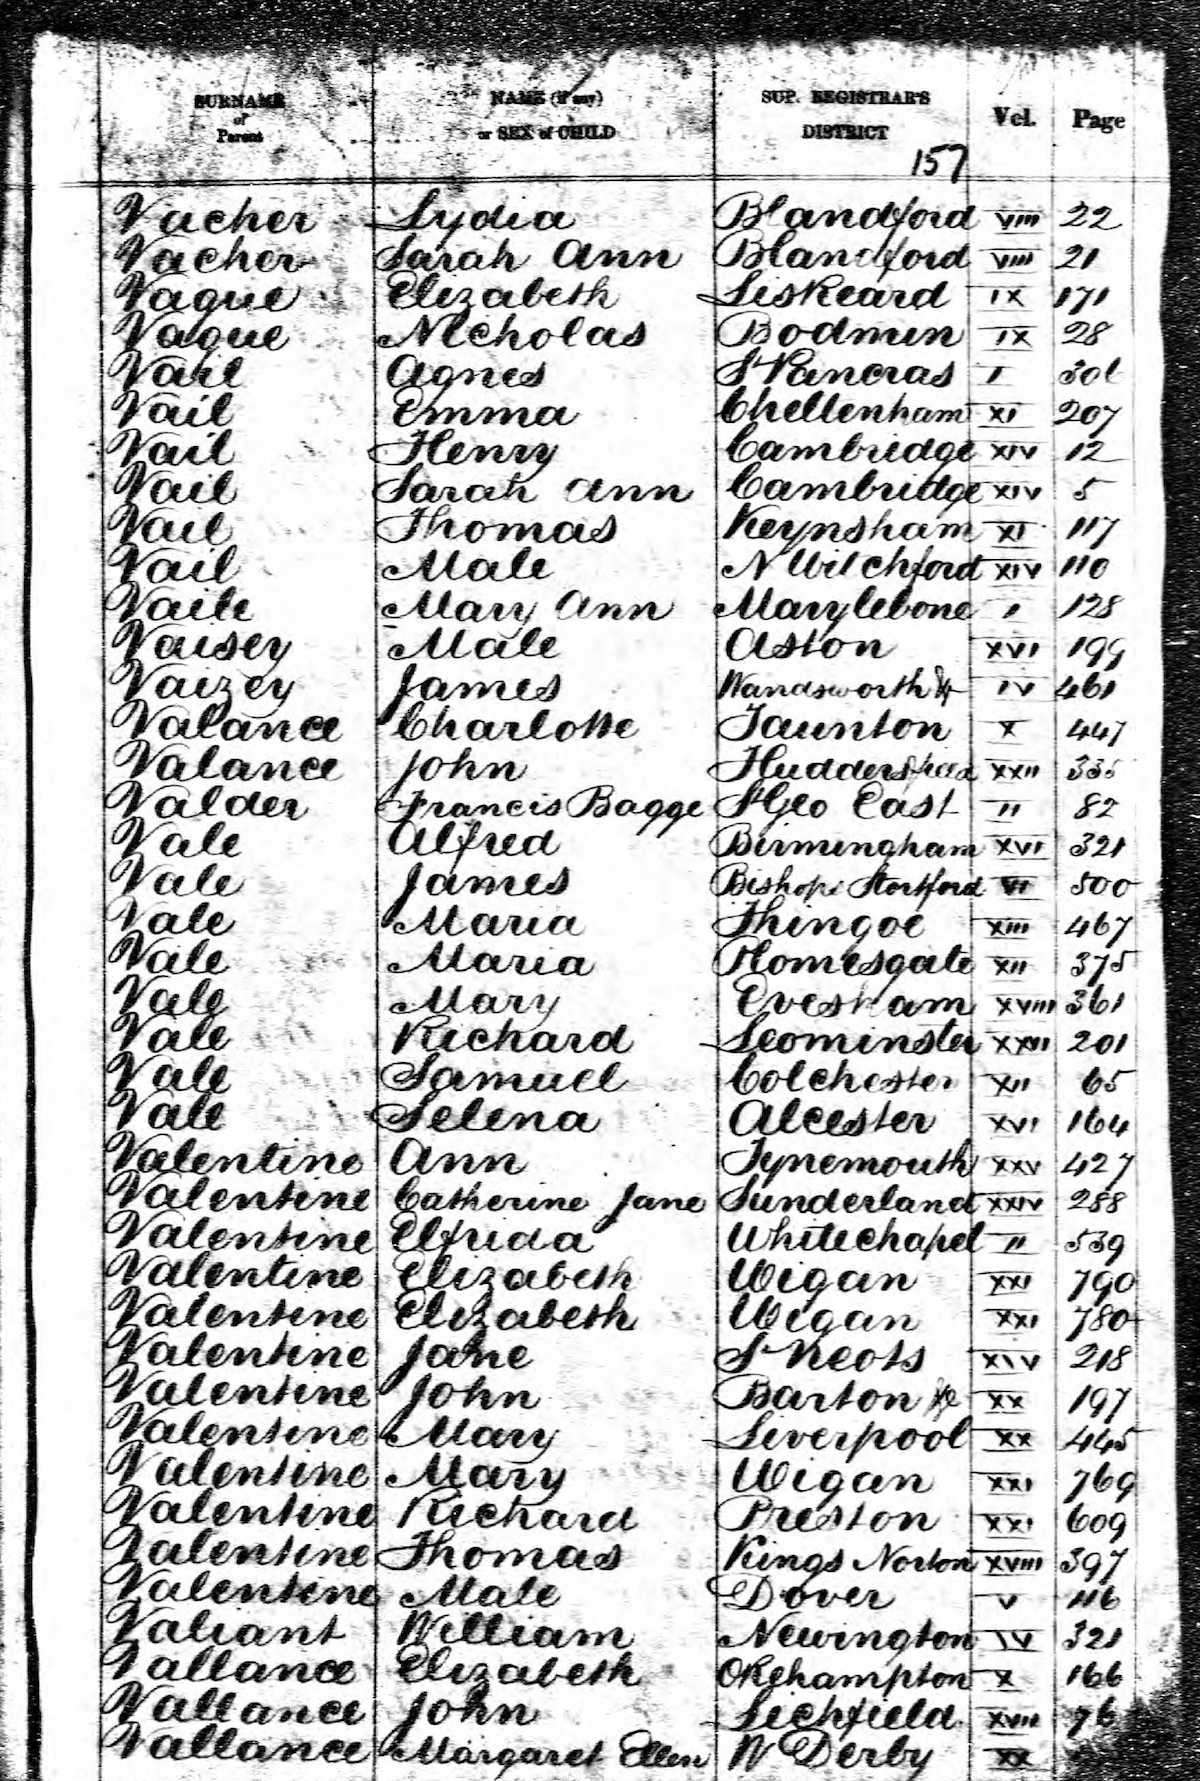 SURNAME of Parent NAME (if any) or SEX of CHILD SUP. REGISTRAR'S DISTRICT Vol. Page
157
Vacher Lydia Blandford VIII 22
Vacher Sarah Ann Blandford VIII 21
Vague Elizabeth Liskeard IX 171
Vague Nicholas Bodmin IX 28
Vail Agnes St Pancras I
Vail Emma Cheltenham XI 207
Vail Henry Cambridge XIV 12
Vail Sarah Ann Cambridge XIV 5
Vail Thomas Keynsham XI 117
Vail Male N Witchford XIV 110
Vaile Mary Ann Marylebone I 128
Vaisey Male Aston XVI 199
Vaizey James Wandsworth &c IV 461
Valance Charlotte Taunton X 447
Valance John Huddersfield XXII 335
Valder Francis Bagge St Geo East II 82
Vale Alfred Birmingham XVI 321
Vale James Bishops Stortford VI 500
Vale Maria Thingoe XIII 467
Vale Maria Plomesgate XII 375
Vale Mary Evesham XVIII 361
Vale Richard Leominster XXVI 201
Vale Samuel Colchester XII 65
Vale Selena Alcester XVI 164
Valentine Ann Tynemouth XXV 427
Valentine Catherine Jane Sunderland XXIV 288
Valentine Elfrida Whitechapel II 539
Valentine Elizabeth Wigan XXI 790
Valentine Elizabeth Wigan XXI 780
Valentine Jane St Neots XIV 218
Valentine John Barton &c XX 197
Valentine Mary Liverpool XX 445
Valentine Mary Wigan XXI 769
Valentine Richard Preston XXI 609
Valentine Thomas Kings Norton XVIII 397
Valentine Male Dover V 116
Valiant William Newington IV 321
Vallance Elizabeth Okehampton X 166
Vallance John Lichfield XVII 76
Vallance Margaret Ellen W Derby XX